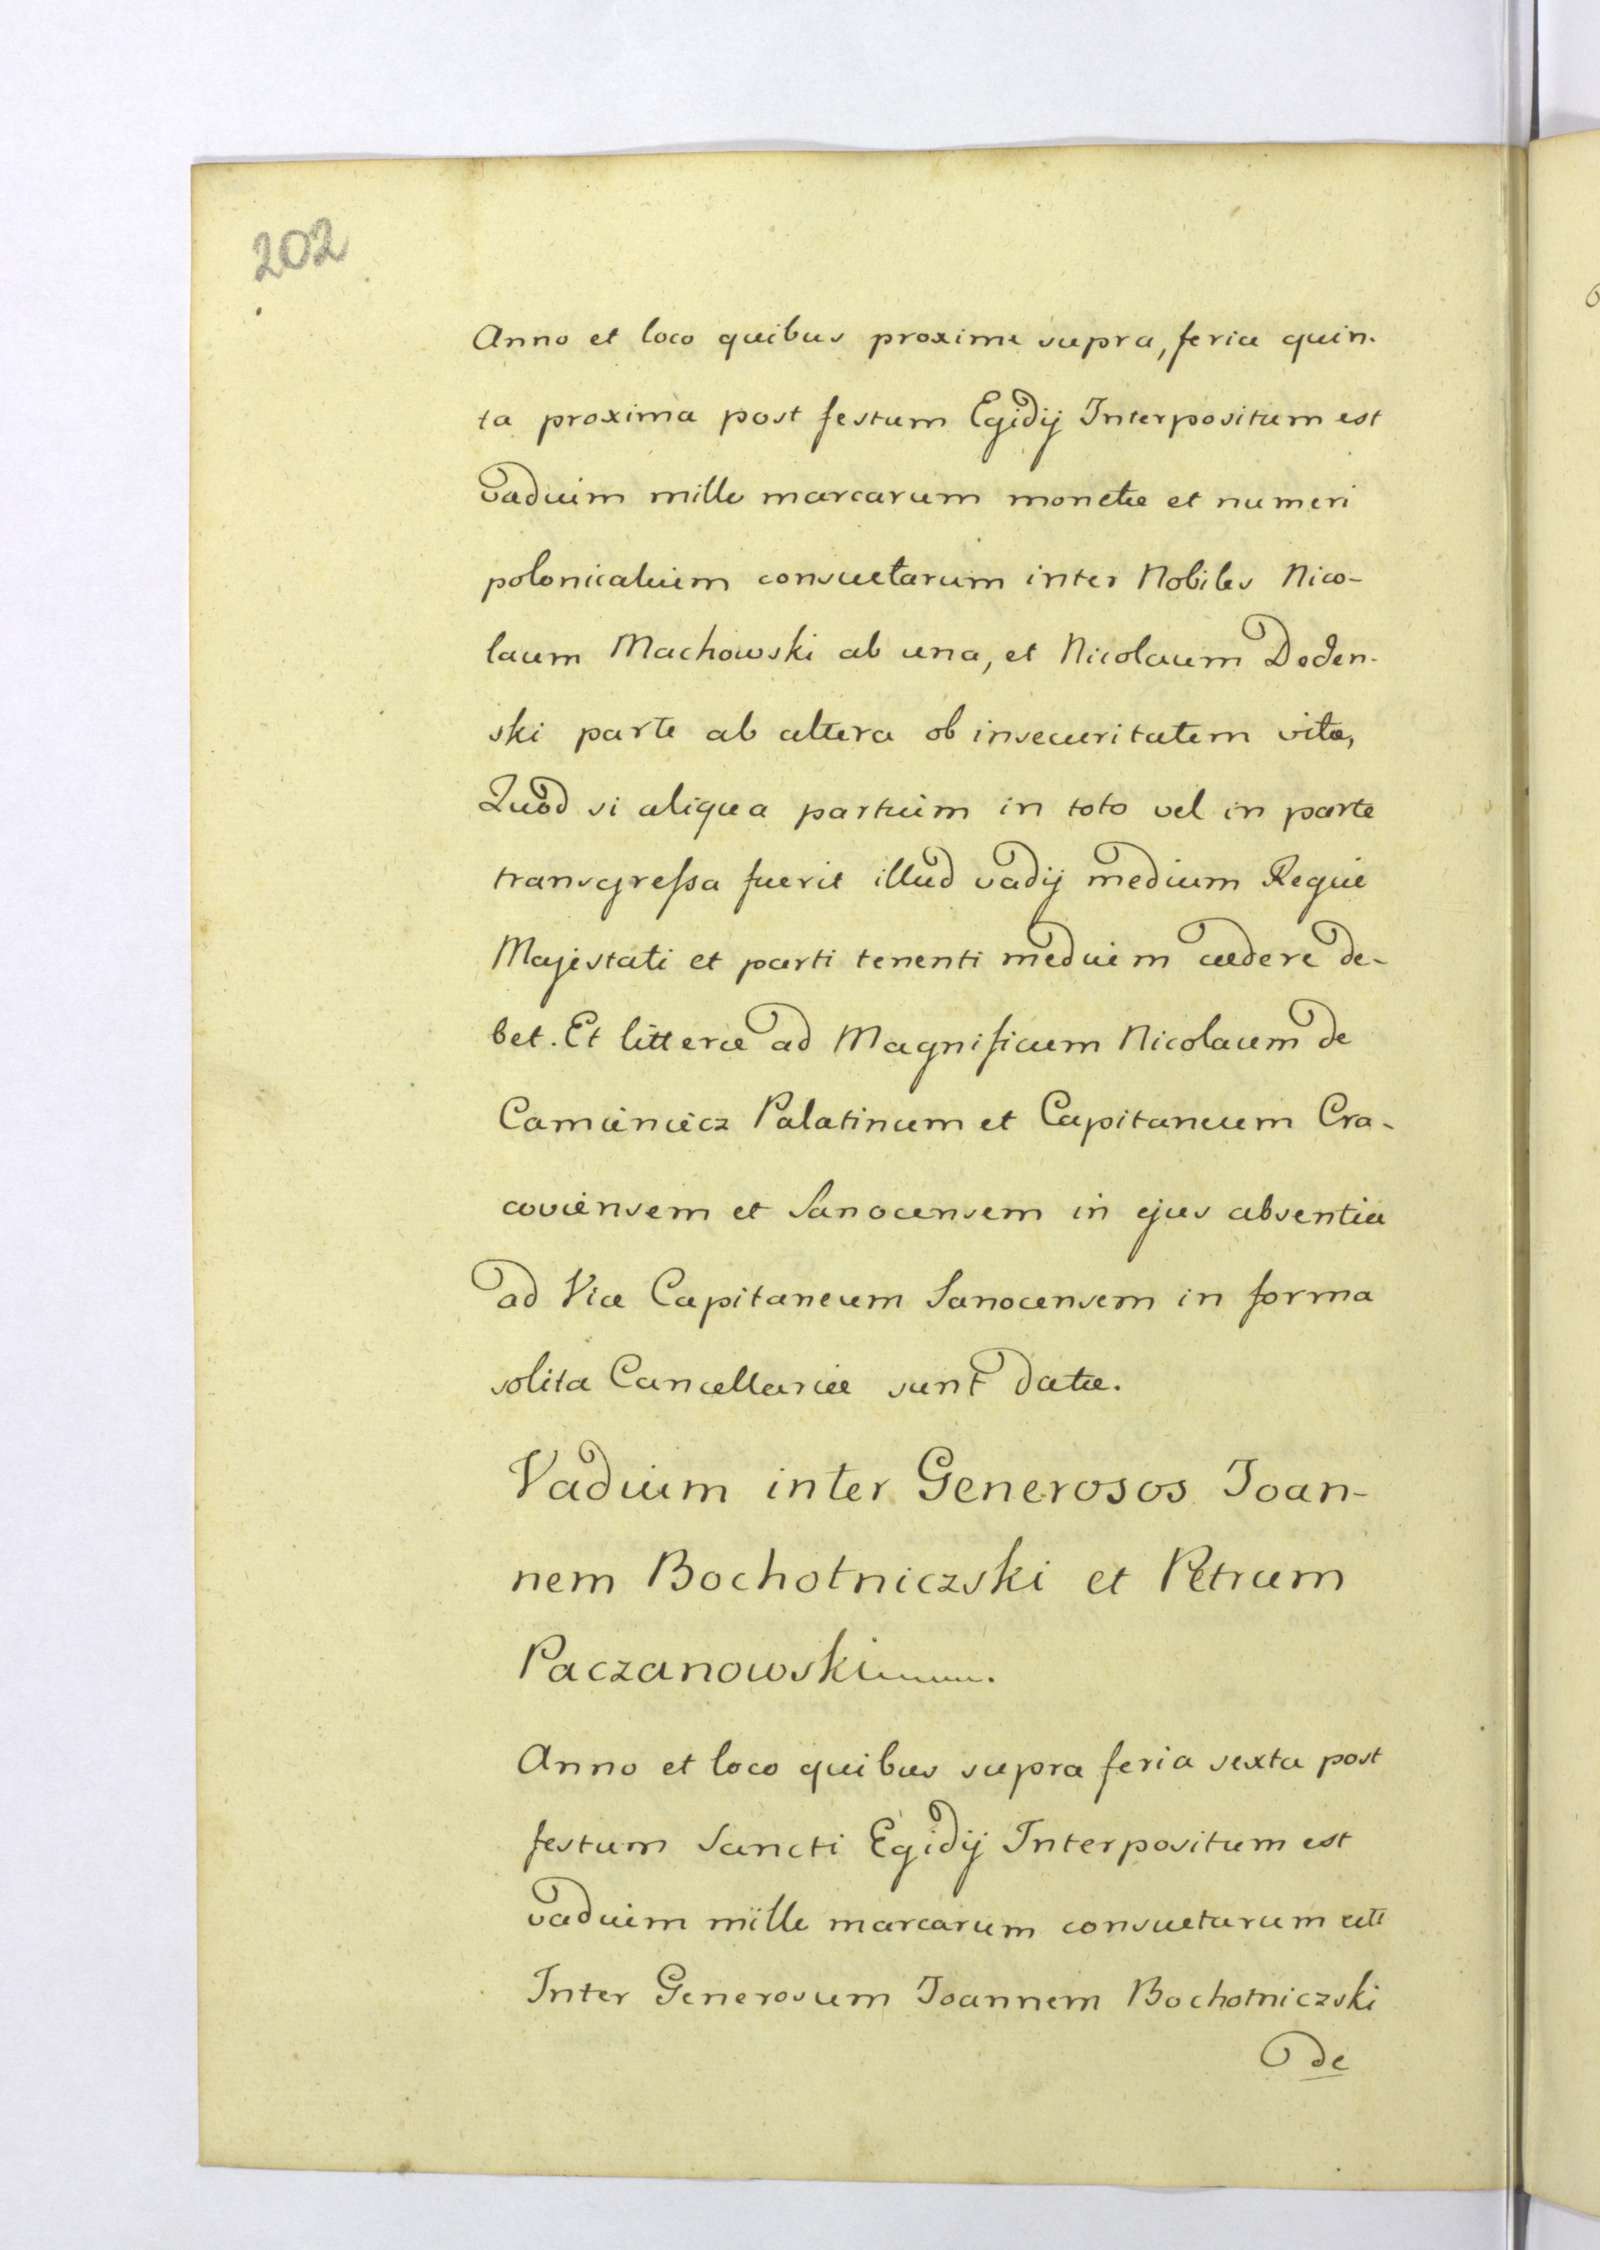 202
Anno et loco quibus proxime supra, feria quin-
ta proxima post festum Egidij Interpositum est
vadium mille marcarum monetæ et numeri
polonicalium consuetarum inter Nobiles Nico-
laum Machowski ab una, et Nicolaum Doden-
ski parte ab altera ob insecuritatem vitæ,
Quod si aliqua partium in toto vel in parte
transgreſsa fuerit illud vadij medium Regiæ
Majestati et parti tenenti medium cædere de-
bet. Et litteræ ad Magnificum Nicolaum de
Camieniecz Palatinum et Capitaneum Cra-
coviensem et Sanocensem in ejus absentia
ad Vice Capitaneum Sanocensem in forma
solita Cancellariæ sunt datæ.
Vadium inter Generosos Joan-
nem Bochotniczski et Petrum
Paczanowski
Anno et loco quibus supra feria sexta post
festum Sancti Egidij Interpositum est
vadium mille marcarum consuetarum
Inter Generosum Joannem Bochotniczski
de